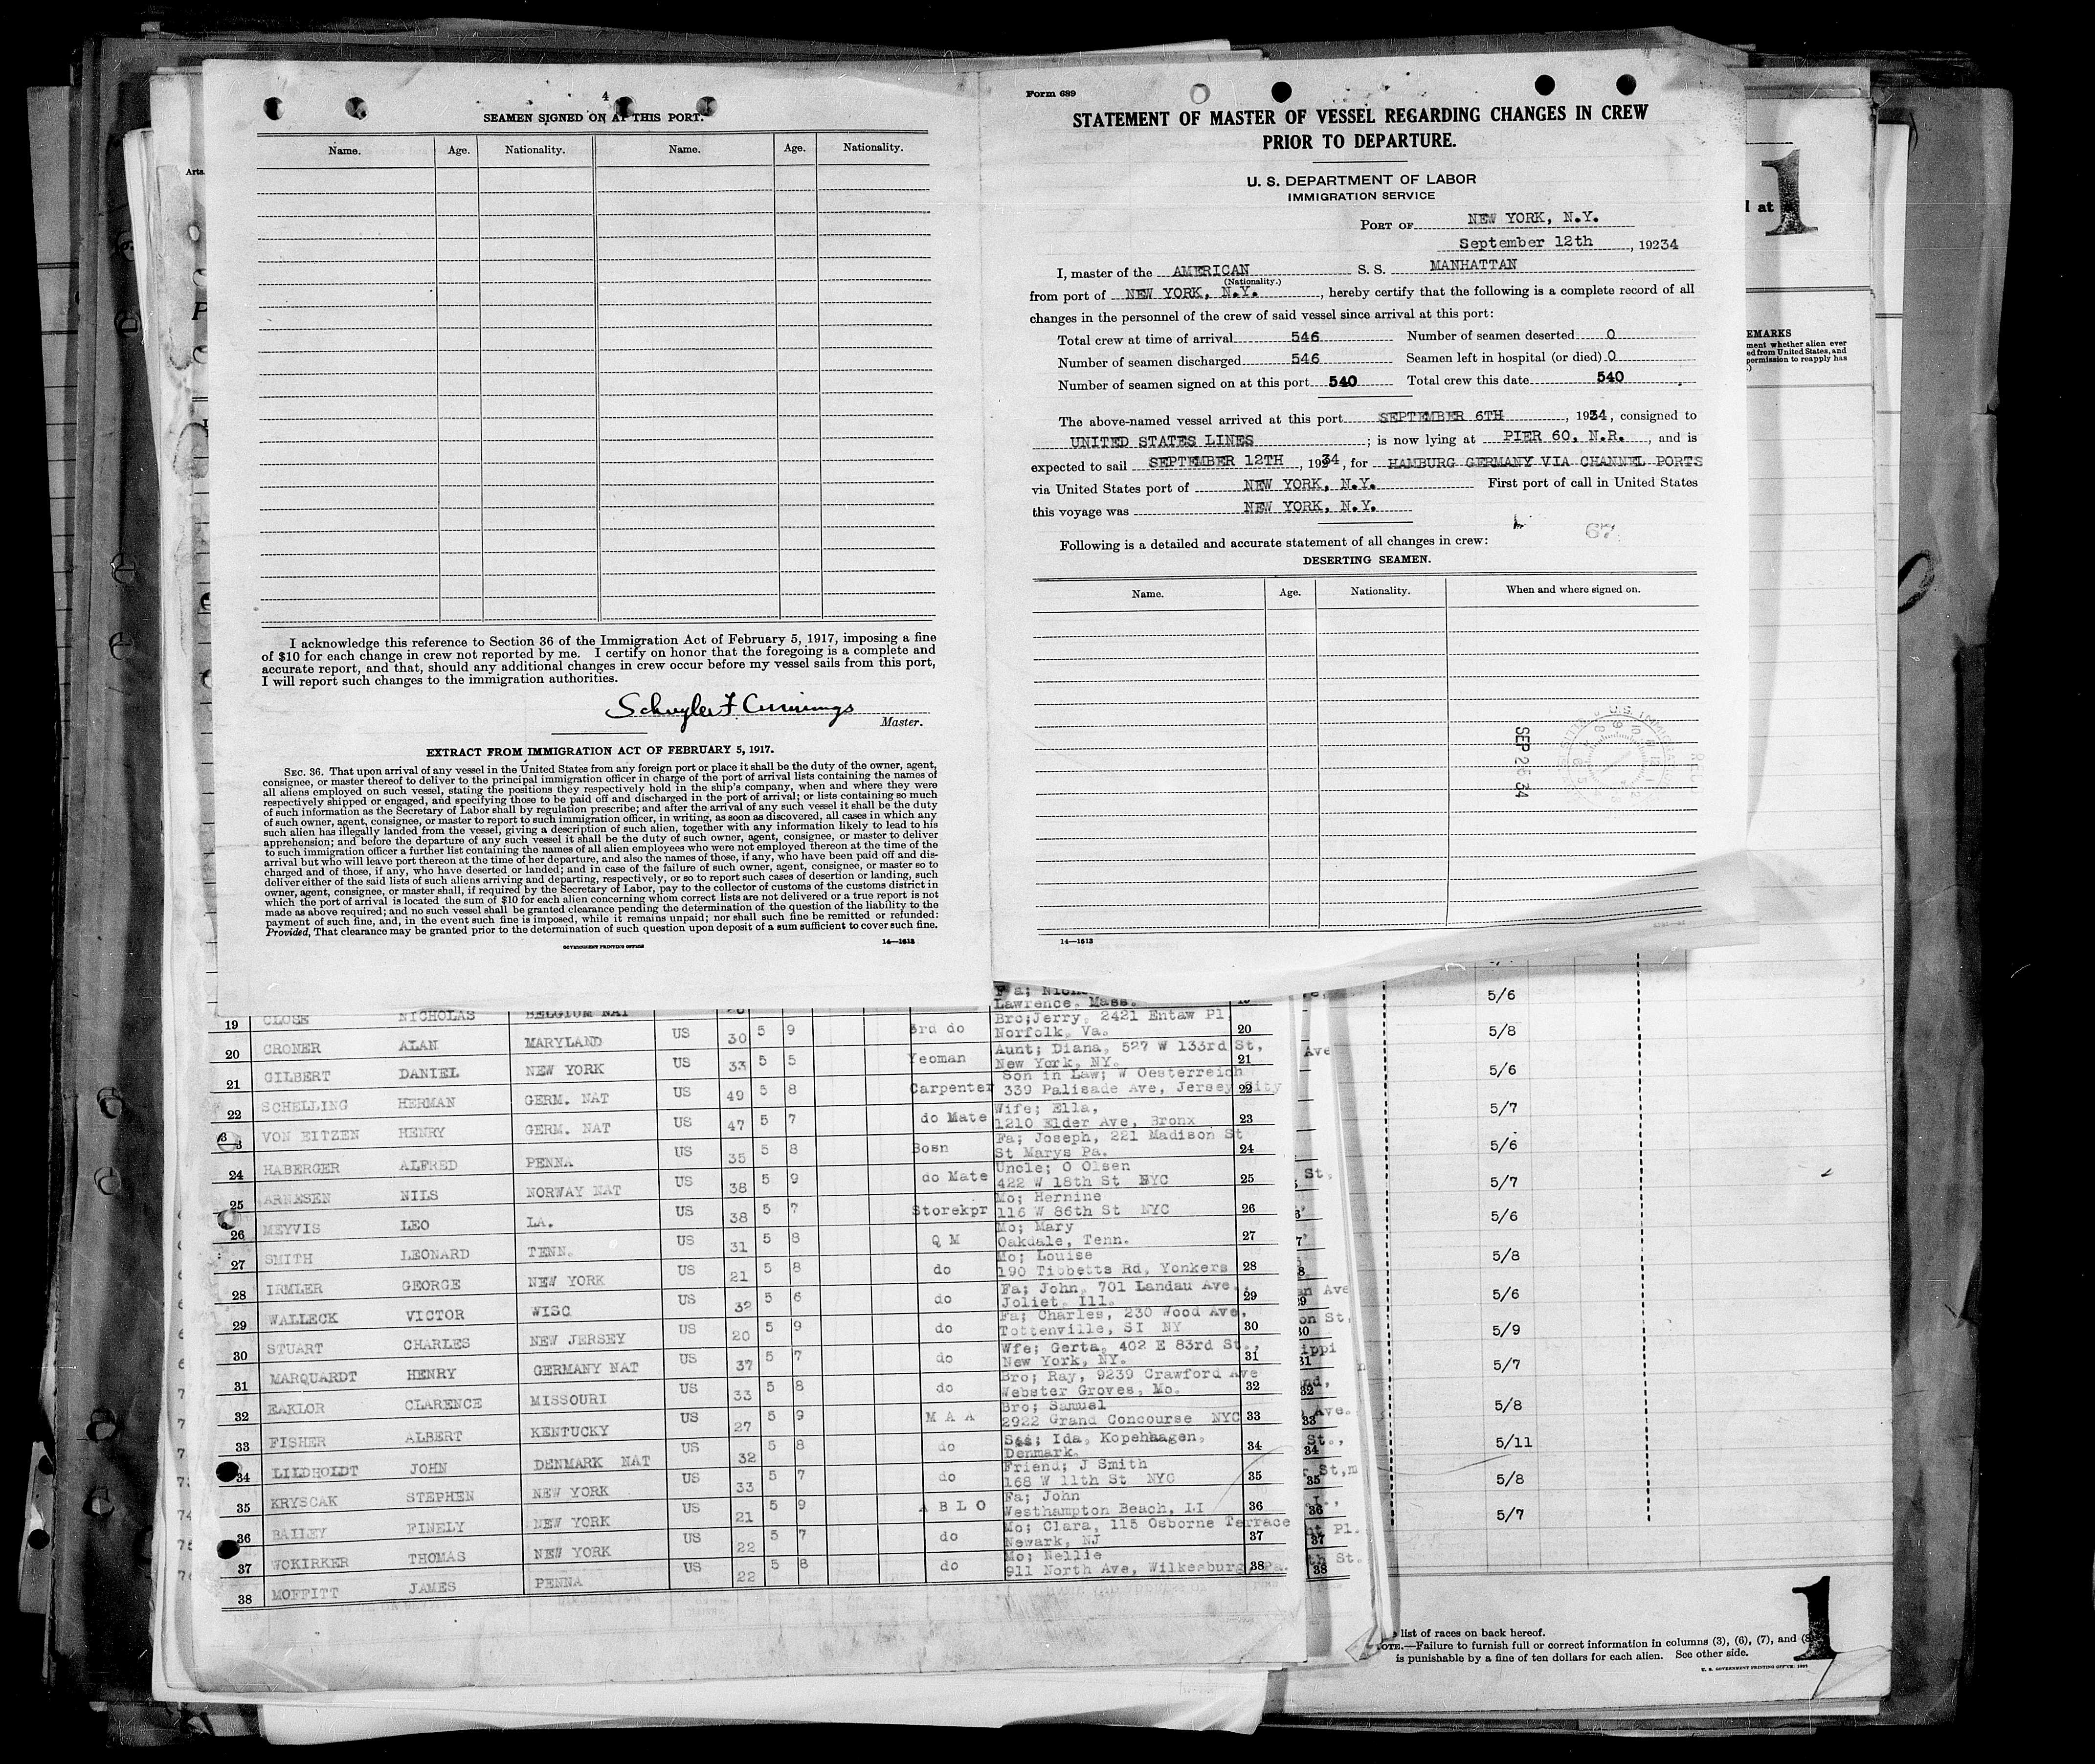 4
SEAMEN SIGNED ON AT THIS PORT.
Name. Age. Nationality. Name. Age. Nationality.
I acknowledge this reference to Section 36 of the Immigration Act of February 5, 1917, imposing a fine
of $10 for each change in crew not reported by me. I certify on honor that the foregoing is a complete and
accurate report, and that, should any additional changes in crew occur before my vessel sails from this port,
I will report such changes to the immigration authorities.
Schuyler F Cummings
Master.
EXTRACT FROM IMMIGRATION ACT OF FEBRUARY 5, 1917.
SEC. 36. That upon arrival of any vessel in the United States from any foreign port or place it shall be the duty of the owner, agent,
consignee, or master thereof to deliver to the principal immigration officer in charge of the port of arrival lists containing the names of
all aliens employed on such vessel, stating the positions they respectively hold in the ship's company, when and where they were
respectively shipped or engaged, and specifying those to be paid off and discharged in the port of arrival; or lists containing so much
of such information as the Secretary of Labor shall by regulation prescribe; and after the arrival of any such vessel it shall be the duty
of such owner, agent, consignee, or master to report to such immigration officer, in writing, as soon as discovered, all cases in which any
such alien has illegally landed from the vessel, giving a description of such alien, together with any information likely to lead to his
apprehension; and before the departure of any such vessel it shall be the duty of such owner, agent, consignee, or master to deliver
to such immigration officer a further list containing the names of all alien employees who were not employed thereon at the time of the
arrival but who will leave port thereon at the time of her departure, and also the names of those, if any, who have been paid off and dis-
charged and of those, if any, who have deserted or landed; and in case of the failure of such owner, agent, consignee, or master so to
deliver either of the said lists of such aliens arriving and departing, respectively, or so to report such cases of desertion or landing, such
owner, agent, consignee, or master shall, if required by the Secretary of Labor, pay to the collector of customs of the customs district in
which the port of arrival is located the sum of $10 for each alien concerning whom correct lists are not delivered or a true report is not
made as above required; and no such vessel shall be granted clearance pending the determination of the question of the liability to the
payment of such fine, and, in the event such fine is imposed, while it remains unpaid; nor shall such fine be remitted or refunded:
Provided, That clearance may be granted prior to the determination of such question upon deposit of a sum sufficient to cover such fine.
GOVERNMENT PRINTING OFFICE 14—1613
Form 689
STATEMENT OF MASTER OF VESSEL REGARDING CHANGES IN CREW
PRIOR TO DEPARTURE.
U. S. DEPARTMENT OF LABOR
IMMIGRATION SERVICE
PORT OF NEW YORK, N.Y.
September 12th, 19234
I, master of the AMERICAN S. S. MANHATTAN
(Nationality.)
from port of NEW YORK, N.Y., hereby certify that the following is a complete record of all
changes in the personnel of the crew of said vessel since arrival at this port:
Total crew at time of arrival 546 Number of seamen deserted 0
Number of seamen discharged 546 Seamen left in hospital (or died) 0
Number of seamen signed on at this port 540 Total crew this date 540
The above-named vessel arrived at this port SEPTEMBER 6TH, 1934, consigned to
UNITED STATES LINES; is now lying at PIER 60, N.R., and is
expected to sail SEPTEMBER 12TH, 1934, for HAMBURG GERMANY VIA CHANNEL PORTS
via United States port of NEW YORK, N.Y. First port of call in United States
this voyage was NEW YORK, N.Y.
67
Following is a detailed and accurate statement of all changes in crew:
DESERTING SEAMEN.
Name. Age. Nationality. When and where signed on.
SEP 25 34
14—1613
Lawrence. Mass.
19 CLOSE NICHOLAS BELGIUM NAT
Bro;Jerry, 2421 Entaw Pl
20 CRONER ALAN MARYLAND US 30 5 9 3rd do Norfolk, Va. 20
Aunt; Diana, 527 W 133rd St,
21 GILBERT DANIEL NEW YORK US 33 5 5 Yeoman New York, NY. 21
Son in Law; W Oesterreich
22 SCHELLING HERMAN GERM. NAT US 49 5 8 Carpenter 339 Palisade Ave, Jersey City 22
Wife; Ella,
3 VON EITZEN HENRY GERM. NAT US 47 5 7 do Mate 1210 Elder Ave, Bronx 23
Fa; Joseph, 221 Madison St
24 HABERGER ALFRED PENNA US 35 5 8 Bosn St Marys Pa. 24
Uncle; O Olsen
25 ARNESEN NILS NORWAY NAT US 38 5 9 do Mate 422 W 18th St NYC 25
Mo; Hernine
26 MEYVIS LEO LA. US 38 5 7 Storekpr 116 W 86th St NYC 26
Mo; Mary
27 SMITH LEONARD TENN. US 31 5 8 Q M Oakdale, Tenn. 27
Mo; Louise
28 IRMLER GEORGE NEW YORK US 21 5 8 do 190 Tibbetts Rd, Yonkers 28
Fa; John, 701 Landau Ave,
29 WALLECK VICTOR WISC US 32 5 6 do Joliet. Ill. 29
Fa; Charles, 230 Wood Ave,
30 STUART CHARLES NEW JERSEY US 20 5 9 do Tottenville, SI NY 30
Wfe; Gerta, 402 E 83rd St.,
31 MARQUARDT HENRY GERMANY NAT US 37 5 7 do New York, NY. 31
Bro; Ray, 9239 Crawford Ave
32 EAKLOR CLARENCE MISSOURI US 33 5 8 do Webster Groves, Mo. 32
Bro; Samuel
33 FISHER ALBERT KENTUCKY US 27 5 9 M A A 2922 Grand Concourse NYC 33
Ida, Kopehhagen,
34 LILDHOLDT JOHN DENMARK NAT US 32 5 8 do Denmark. 34
Friend; J Smith
35 KRYSCAK STEPHEN NEW YORK US 33 5 7 do 168 W 11th St NYC 35
Fa; John
36 BAILEY FINELY NEW YORK US 21 5 9 A B L O Westhampton Beach, LI 36
Mo; Clara, 115 Osborne Terrace
37 WOKIRKER THOMAS NEW YORK US 22 5 7 do Newark, NJ 37
Mo; Nellie
38 MOFFITT JAMES PENNA US 22 5 8 do 911 North Ave, Wilkesburg, Pa. 38
1
EMARKS
ment whether alien ever
ed from United States, and
permission to reapply has
5/6
5/8
5/6
5/7
5/6
5/7
5/6
5/8
5/6
5/9
5/7
5/8
5/11
5/8
5/7
list of races on back hereof.
NOTE.—Failure to furnish full or correct information in columns (3), (6), (7), and (8)
is punishable by a fine of ten dollars for each alien. See other side.
U. S. GOVERNMENT PRINTING OFFICE
1